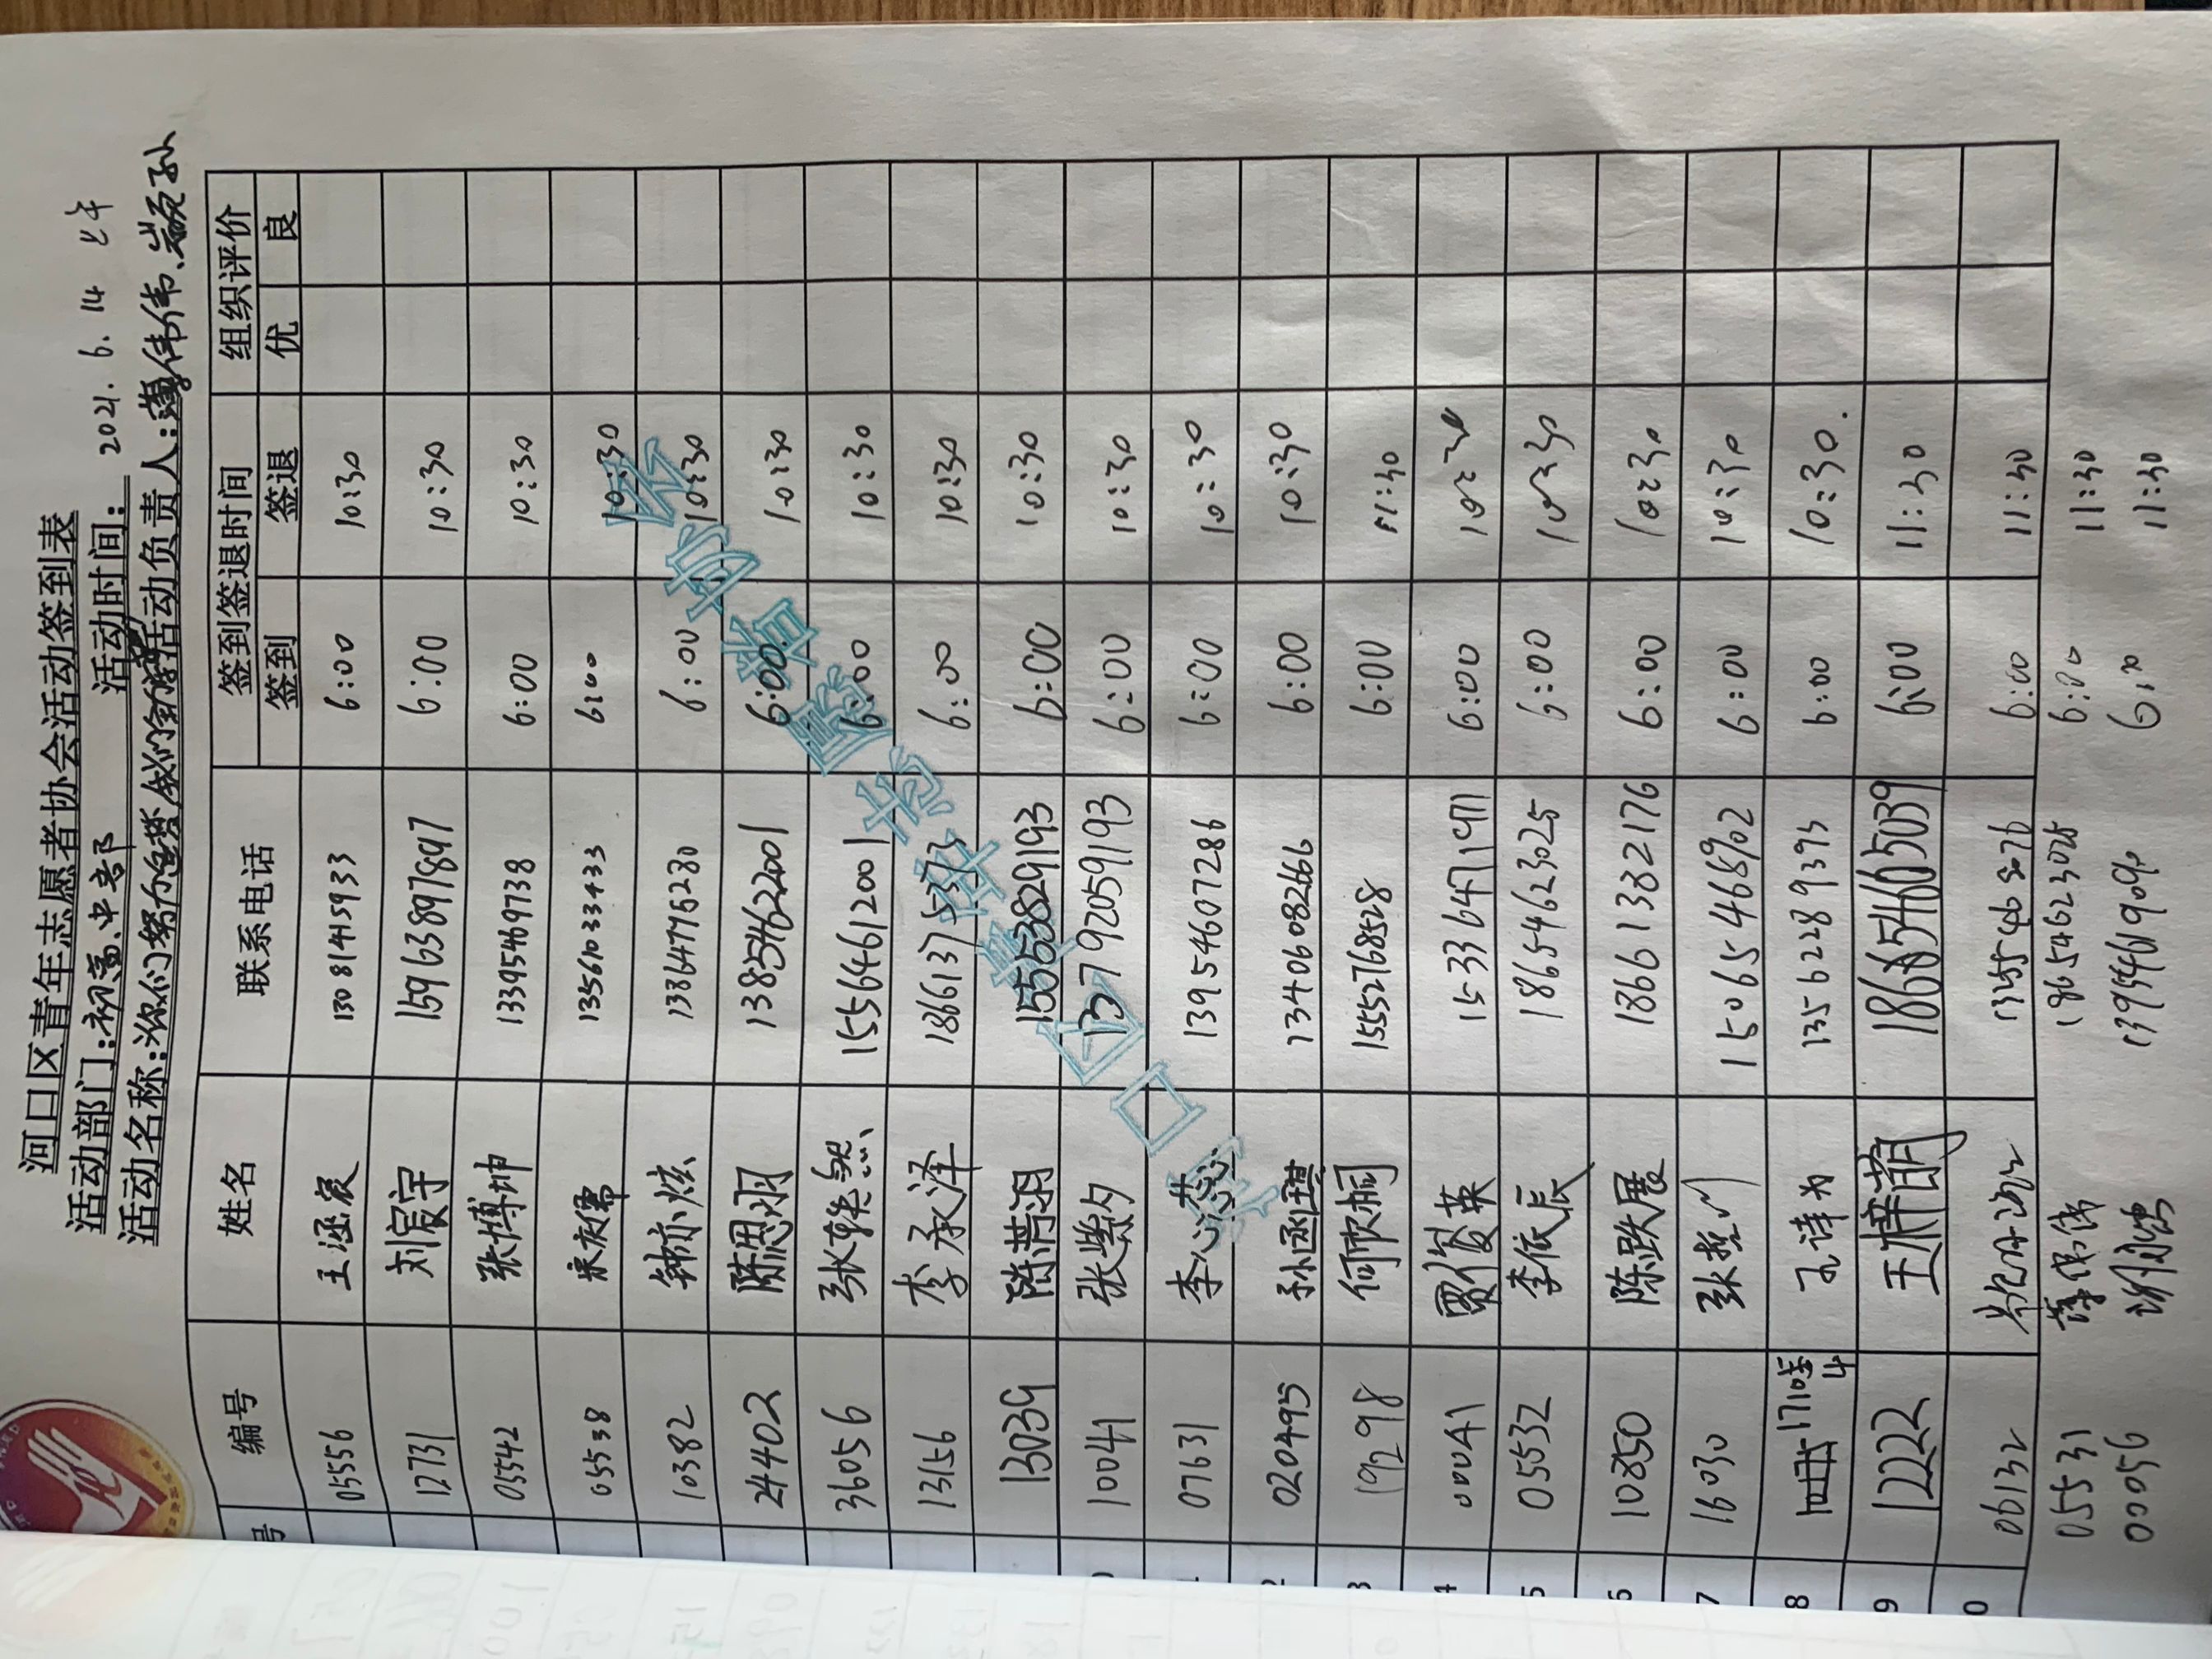 河口区青年志愿者协会活动签到表
活动部门:初高中部 活动时间: 2021. 6. 14 上午
活动名称:你们努力追梦 我们 活动负责人:薄伟伟、
号 编号 姓名 联系电话 签到签退时间 组织评价
签到 签退 优 良
05556 王涵宸 13081415933 6:00 10:30
12731 刘宸宇 15963897897 6:00 10:30
05542 张博帅 13395469738 6:00 10:30
05538 13561033433 6:00 10:30
10382 钟亦炫 13864776280 6:00 10:30
24402 陈思羽 13854622001 6:00 10:30
36056 张轶然 15564612001 6:00 10:30
13156 李承泽 18661375373 6:00 10:30
13039 陈芳羽 15553829193 6:00 10:30
10041 张紫夕 13792059193 6:00 10:30
07631 李心蕊 13954607286 6:00 10:30
2 020495 孙函琪 13406608266 6:00 10:30
3 19298 何欣桐 15552768528 6:00 11:30
4 00041 贾俊英 15336471971 6:00 10:30
5 05532 李依辰 18654623025 6:00 10:30
6 10850 陈跃展 18661382176 6:00 10:30
7 16030 张 15065468902 6:00 10:30
8 孔诗为 13562289393 6:00 10:30.
9 12222 王梓萌 18665465039 6:00 11:30
0 06132 6:00 11:30
05531 薄伟伟 18654623025 6:00 11:30
00056 6:00 11:30
东营市河口区青年志愿者协会